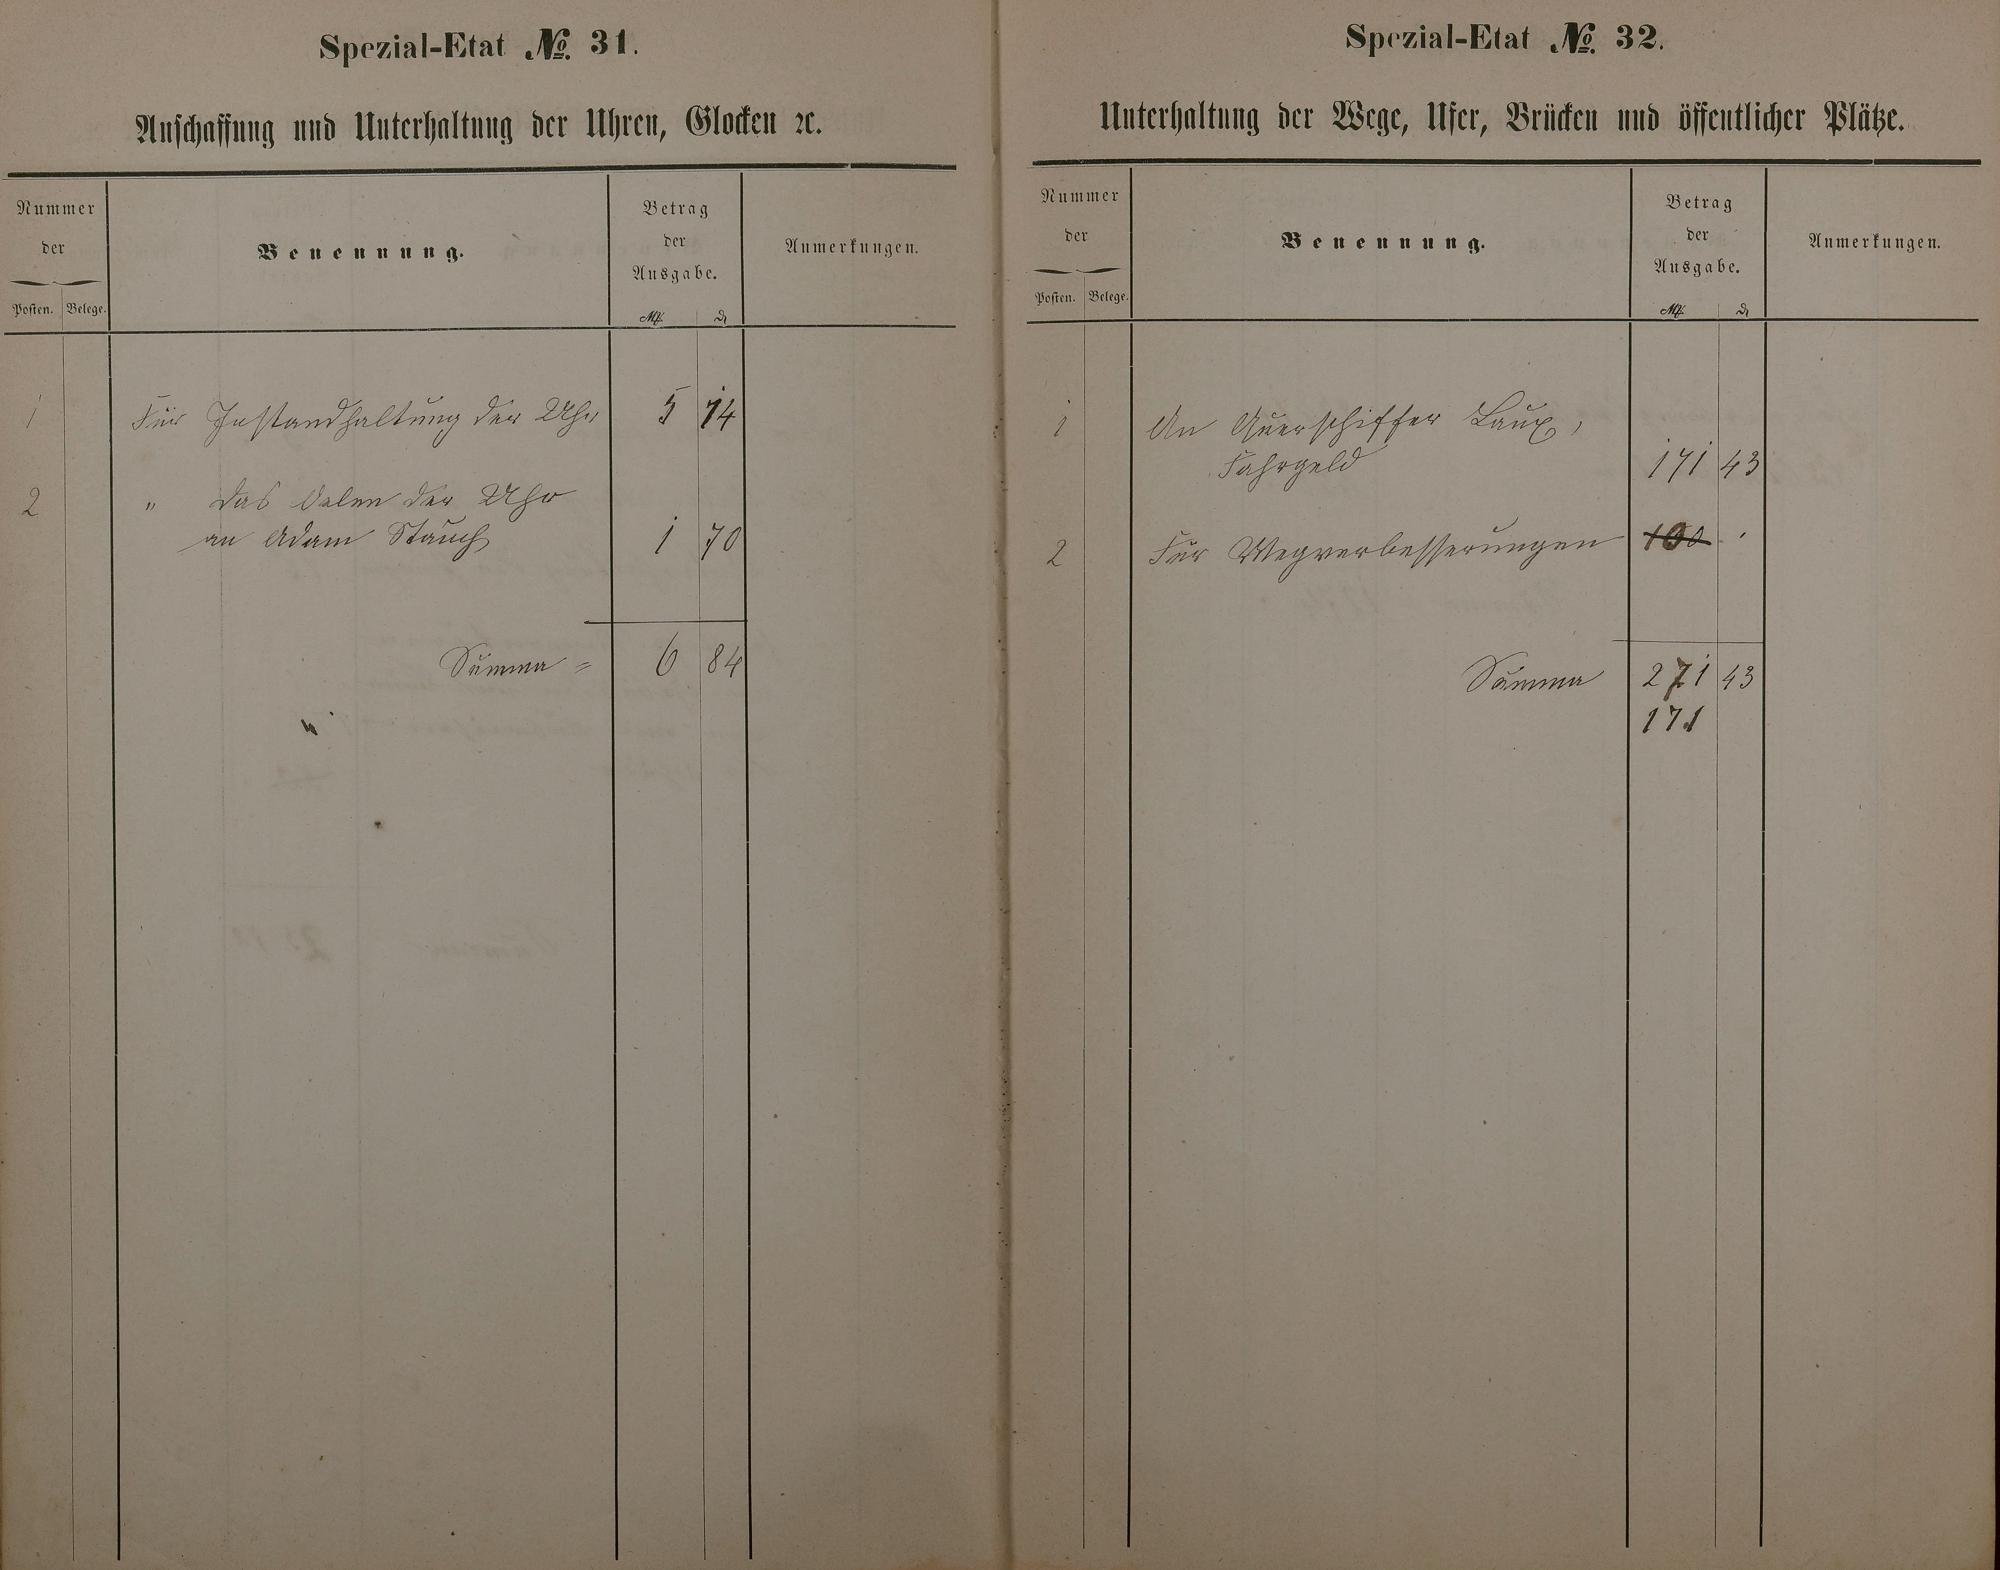 Spezial-Etat № 31.
Anschaffung und Unterhaltung der Uhren, Glocken ꝛc.
Nummer
der
Posten. Belege.
Benennung.
Betrag
der
Ausgabe.
ℳ ₰
Anmerkungen.
1 Für Instandhaltung der Uhr 5 14
2 " das Oelen der Uhr
an Adam Stauch 1 70
Summa = 6 84
Spezial-Etat № 32.
Unterhaltung der Wege, Ufer, Brücken und öffentlicher Plätze.
Nummer
der
Posten. Belege.
Benennung.
Betrag
der
Ausgabe.
ℳ ₰
Anmerkungen.
1 An Querschiffer Laux,
Fahrgeld 171 43
2 Für Wegverbesserungen 100 .
Summa 271 43
171